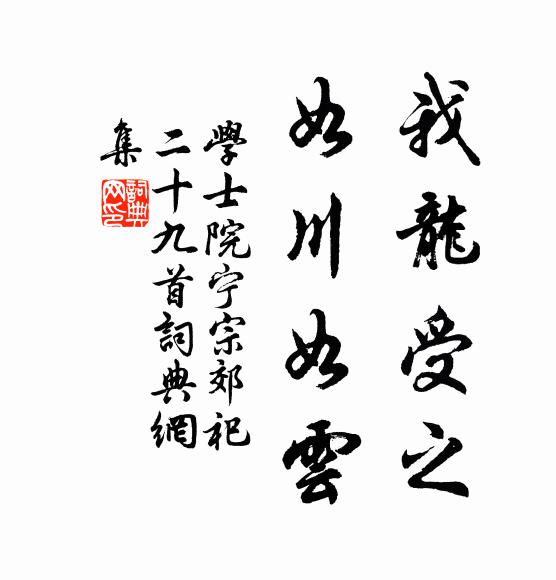 我龍受之
如川如雲
學士院宁宗郊祀
二十九首詞典網
集
詞典
网印